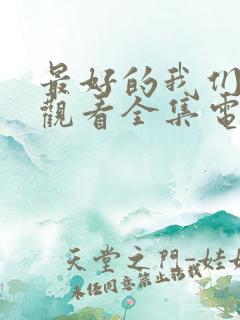 最好的我们
觀看全集電
天堂之門-娃娃
未经同意禁止转载